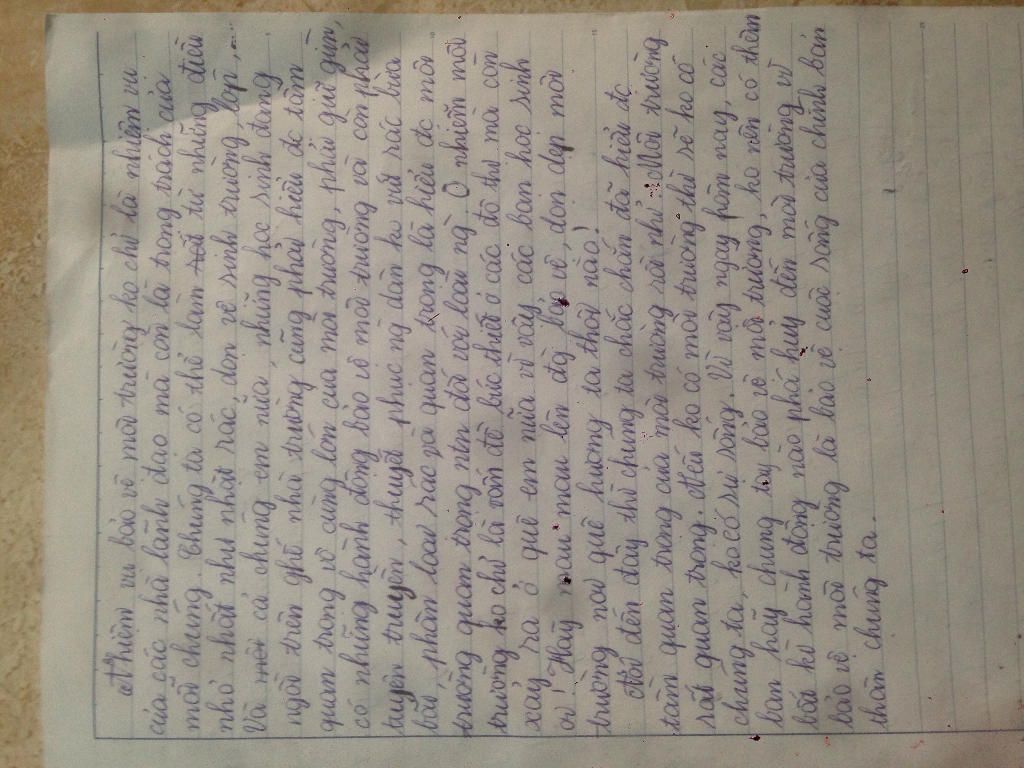 Nhiệm vụ bảo vệ môi trường ko chỉ là nhiệm vụ
của các nhà lãnh đạo mà còn là trọng trách của
mỗi chúng. Chúng ta có thể làm từ những điều
nhỏ nhất như nhặt rác, dọn vệ sinh trường, lớp,...
Và cả chúng em nữa, những học sinh đang
ngồi trên ghế nhà trường cũng phải hiểu đc tầm
quan trọng vô cùng lớn của môi trường, phải giữ gìn,
có những hành động bảo vệ môi trường và còn phải
tuyên truyền, thuyết phục ng dân ko vứt rác bừa
bãi, phân loại rác và quan trọng là hiểu đc môi
trường quan trọng ntn đối với loài ng. Ô nhiễm môi
trường ko chỉ là vấn đề bức thiết ở các đô thị mà còn
xảy ra ở quê em nữa vì vậy các bạn học sinh
ơi! Hãy mau mau lên đây, bảo vệ, dọn dẹp môi
trường nơi quê hương ta thôi nào!
Nói đến đây thì chúng ta chắc chắn đã hiểu đc
tầm quan trọng của môi trường rồi nhỉ. Môi trường
rất quan trọng. Nếu ko có môi trường thì sẽ ko có
chúng ta, ko có sự sống. Vì vậy ngay hôm nay, các
bạn hãy chung tay bảo vệ môi trường, ko nên có thêm
bất kì hành động nào phá hủy đến môi trường vì
bảo vệ môi trường là bảo vệ cuộc sống của chính bản
thân chúng ta.